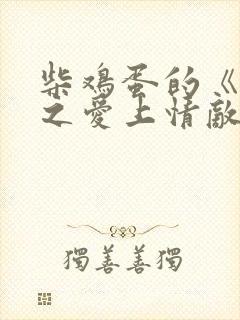 柴鸡蛋的《
之爱上情敌
獨善善獨